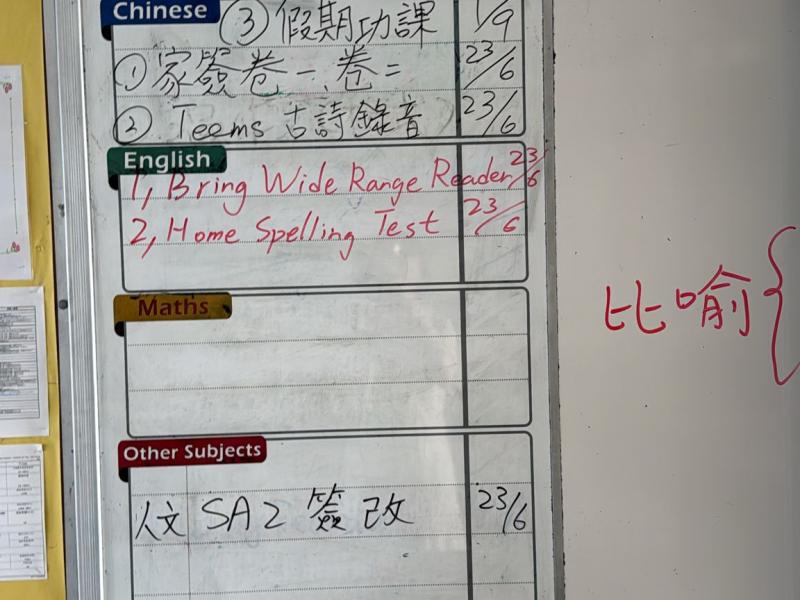 Chinese
③ 假期功課 1/9
① 家簽卷一、卷二 23/6
② Teems 古詩錄音 23/6
English
1, Bring Wide Range Reader 23/6
2, Home Spelling Test 23/6
比喻{
Maths
Other Subjects
人文 SA2 簽改 23/6